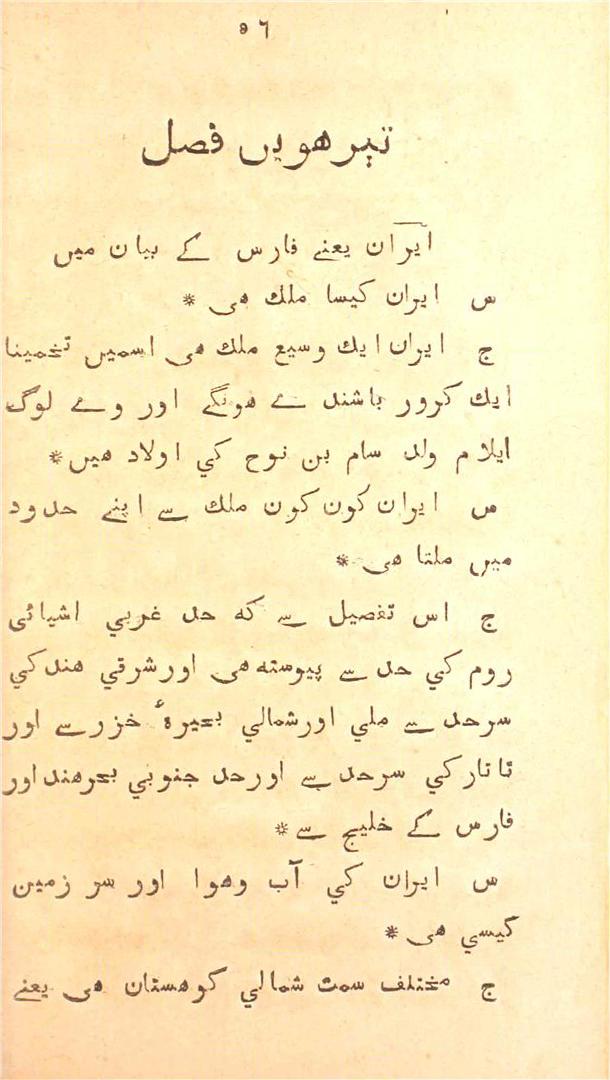 ۹۶
تیرھویں فصل
ایران یعنے فارس کے بیان میں
س ایران کیسا ملك ھی *
ج ایران ایك وسیع ملك ھی اسمیں تخمینا
ایك کرور باشندے ھونگے اور وے لوگ
ایلام ولد سام بن نوح کي اولاد ھیں *
س ایران کون کون ملك سے اپنے حدود
میں ملتا ھی *
ج اس تفصیل سے که حد غربي اشیائی
روم کي حد سے پیوسته ھی اور شرقي ھند کي
سرحد سے ملي اور شمالي بحیرۂ خزر سے اور
تاتار کي سرحد سے اور حد جنوبي بحرھند اور
فارس کے خلیج سے *
س ایران کي آب وھوا اور سر زمین
کیسي ھی *
ج مختلف سمت شمالي کوھستان ھی یعنے